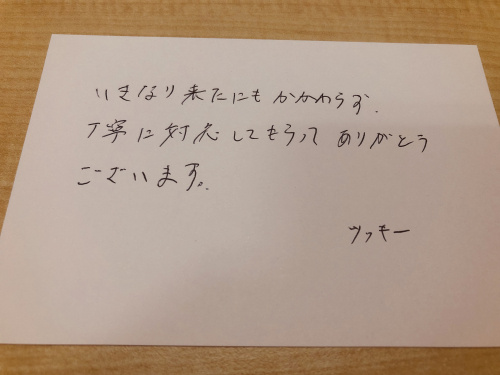 いきなり来たにもかかわらず、
丁寧に対応してもらって ありがとう
ございます。
ツッキー